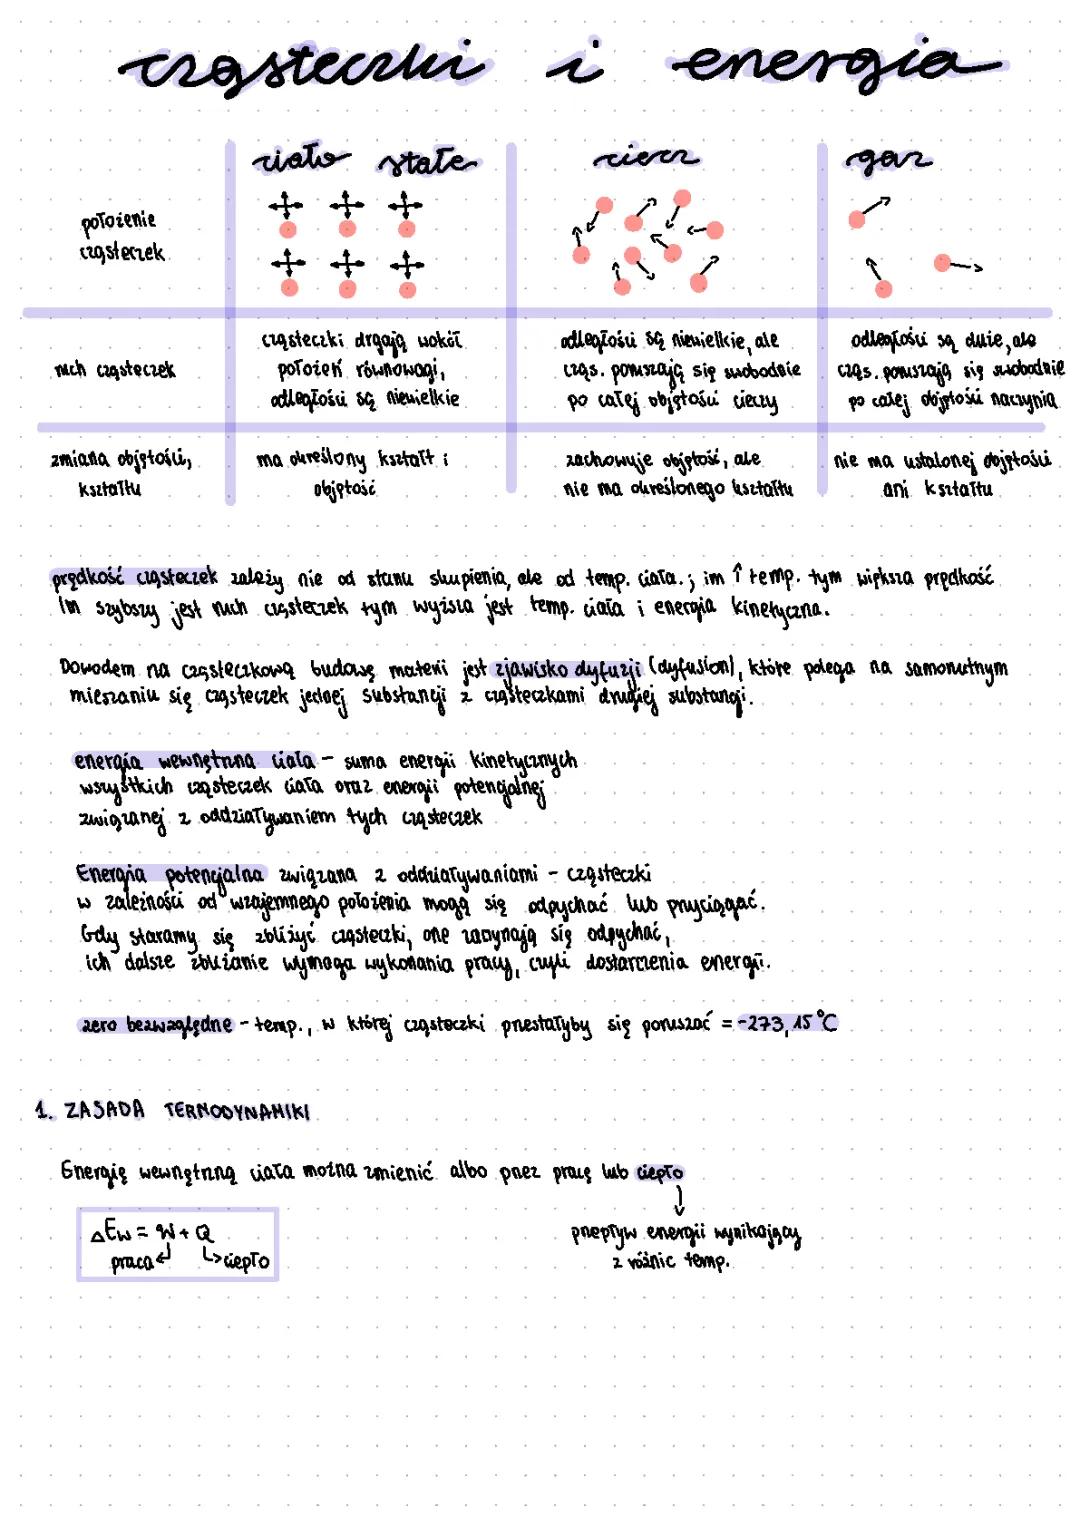 cząsteczki i energia
ciało stałe
ciecz
gaz
położenie
cząsteczek
ruch cząsteczek
cząsteczki drgają wokół
położeń równowagi,
odległości są niewielkie
odległości są niewielkie, ale
cząs. poruszają się swobodnie
po całej objętości cieczy
odległości są duże, ale
cząs. poruszają się swobodnie
po całej objętości naczynia
zmiana objętości,
kształtu
ma określony kształt i
objętość
zachowuje objętość, ale
nie ma określonego kształtu
nie ma ustalonej objętości
ani kształtu
prędkość cząsteczek zależy nie od stanu skupienia, ale od temp. ciała.; im ↑ temp. tym większa prędkość
Im szybszy jest ruch cząsteczek tym wyższa jest temp. ciała i energia kinetyczna.
Dowodem na cząsteczkową budowę materii jest zjawisko dyfuzji (dyfusion), które polega na samorutnym
mieszaniu się cząsteczek jednej substancji z cząsteczkami drugiej substancji.
energia wewnętrzna ciała - suma energii kinetycznych
wszystkich cząsteczek ciała oraz energii potencjalnej
związanej z oddziaływaniem tych cząsteczek
Energia potencjalna związana z oddziaływaniami - cząsteczki
w zależności od wzajemnego położenia mogą się odpychać lub przyciągać.
Gdy staramy się zbliżyć cząsteczki, one zaczynają się odpychać,
ich dalsze zbliżanie wymaga wykonania pracy, czyli dostarczenia energii.
zero bezwzględne - temp., w której cząsteczki przestałyby się poruszać = -273,15°C
1. ZASADA TERMODYNAMIKI
Energię wewnętrzną ciała można zmienić albo przez pracę lub ciepło
↓
przepływ energii wynikający
z różnic temp.
ΔEw = W + Q
praca ↵ ↳ ciepło